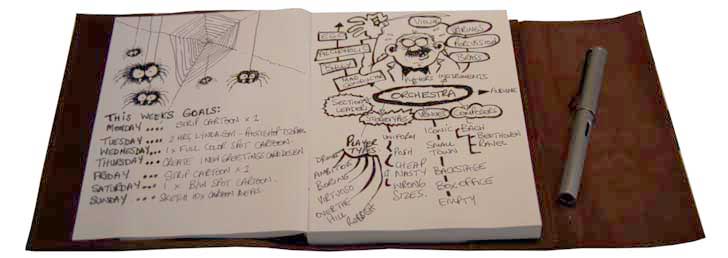 THIS WEEKS GOALS:
MONDAY .... STRIP CARTOON x 1
TUESDAY .... 2 HRS LYNDA.COM - PHOTOSHOP
WEDNESDAY... 1 x FULL COLOR SPOT CARTOON.
THURSDAY.... CREATE 1 NEW GREETINGS CARD DESIGN
FRIDAY .... STRIP CARTOON x 1
SATURDAY.... 1 x B/W SPOT CARTOON.
SUNDAY .... SKETCH 10x CARTOON IDEAS.
EGO
BULLY
MAD CONDUCTOR
VIOLIN
STRINGS
PERCUSSION
BRASS
PLAYERS
INSTRUMENTS
ORCHESTRA
SECTIONAL LEADERS
STEREOTYPES
VENUES
COMPOSERS
PLAYER TYPES
DRUNK
AMBITIOUS
BORING
VIRTUOSO
OVER THE HILL
RUBBISH
UNIFORM
POSH
CHEAP
NASTY
WRONG SIZES.
ICONIC
SMALL TOWN
BACKSTAGE
BOX OFFICE
EMPTY
BACH
BEETHOVEN
RAVEL